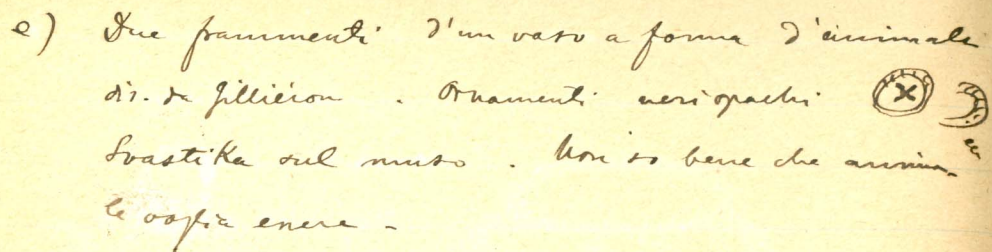 e) Due frammenti d'un vaso a forma d'animale
dis. da Gilliéron. Ornamenti neri opachi
Svastika sul muso. Non so bene che anima-
le voglia essere -